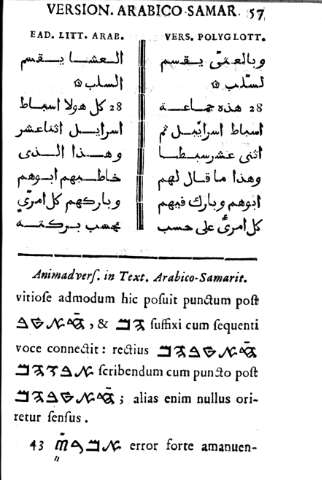 VERSION. ARABICO-SAMAR. 57
EAD. LITT. ARAB.
العشا يقسم
السلب
28 كل هولا اسباط
اسرايل اثناعشر
وهذا الذى
خاطبهم ابوهم
وباركهم كل امرئ
بحسب بركته
VERS. POLYGLOTT.
يقسم
28 هذه جماعة
اسباط اسرائيل ثم
اثنى عشر سبطا
وهذا ما قال لهم
ابوهم وبارك فيهم
كل امرئ على حسب
Animadvers. in Text. Arabico-Samarit.
vitiose admodum hic posuit punctum post
, & suffixi cum sequenti
voce connectit: rectius
scribendum cum puncto post
; alias enim nullus ori-
retur sensus.
43 error forte amanuen-